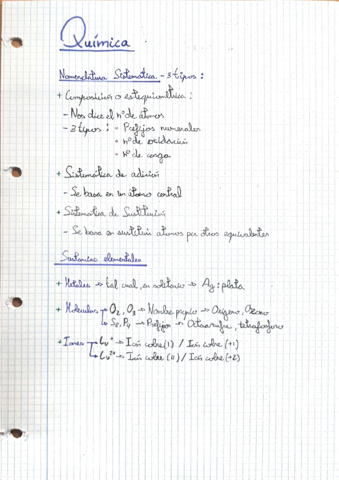 Química
Nomenclatura Sistemática - 3 tipos:
+ Composición o estequiométrica:
- Nos dice el nº de átomos
- 3 tipos: • Prefijos numerales
• nº de oxidación
• nº de carga
+ Sistemática de adición
- Se basa en un átomo central
+ Sistemática de Sustitución
- Se basa en sustituir átomos por otros equivalentes
Sustancias elementales
+ Metales → tal cual, en solitario → Ag: plata
+ Moléculas → O₂, O₃ → Nombre propio → Oxígeno, Ozono
→ S₈, P₄ → Prefijos → Octaazufre, tetrafósforo
+ Iones → Cu⁺ → Ión cobre (1) / Ión cobre (+1)
→ Cu²⁺ → Ión cobre (II) / Ión cobre (+2)